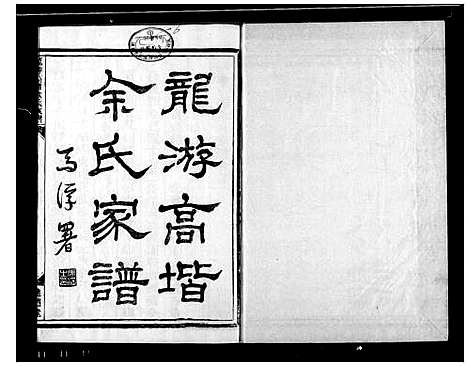 龍游高堦
余氏家譜
馬浮署